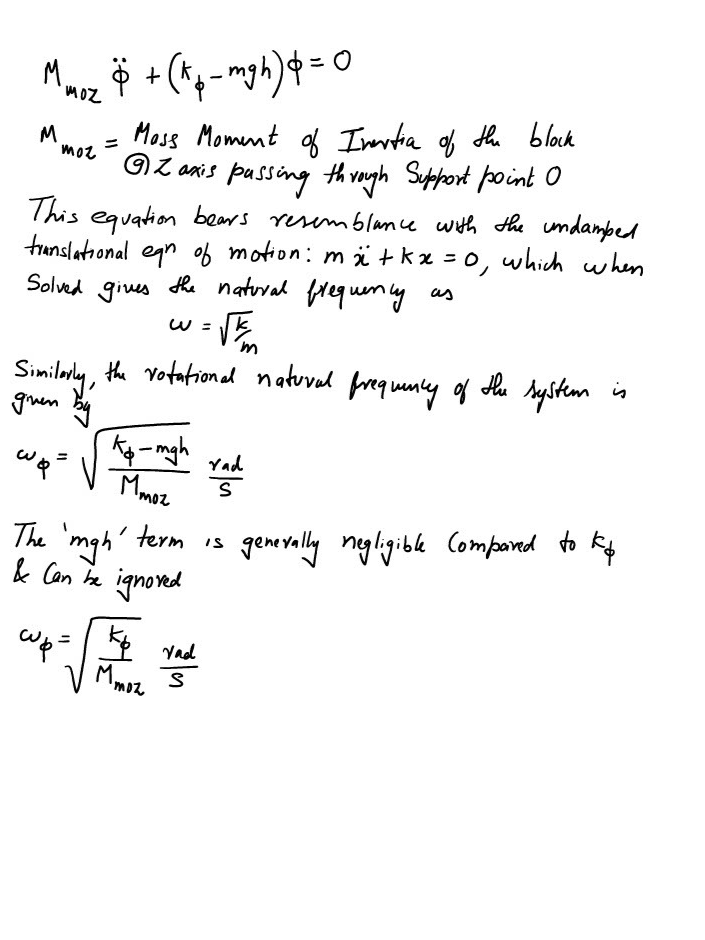 M_moz ϕ̈ + (k_ϕ - mgh)ϕ = 0
M_moz = Mass Moment of Inertia of the block
@ Z axis passing through Support point O
This equation bears resemblance with the undamped
translational eqn of motion: m ẍ + k x = 0, which when
Solved gives the natural frequency as
ω = √(k/m)
Similarly, the rotational natural frequency of the system is
given by
ω_ϕ = √((k_ϕ - mgh)/M_moz) rad/s
The 'mgh' term is generally negligible Compared to k_ϕ
& Can be ignored
ω_ϕ = √(k_ϕ/M_moz) rad/s